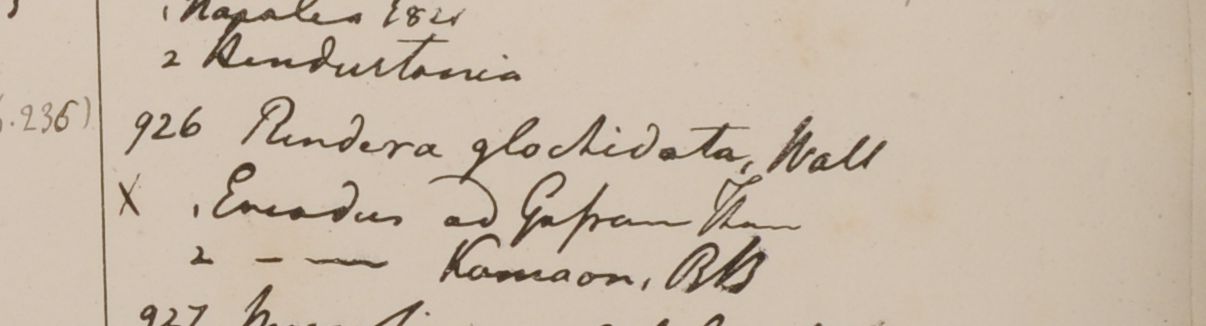 1 Napalea 1821
2 Hendustania
.236)
926 Rindera glochidata, Wall
X 1 Emodus ad Gosain Than
2 - — Kamaon, RB
927